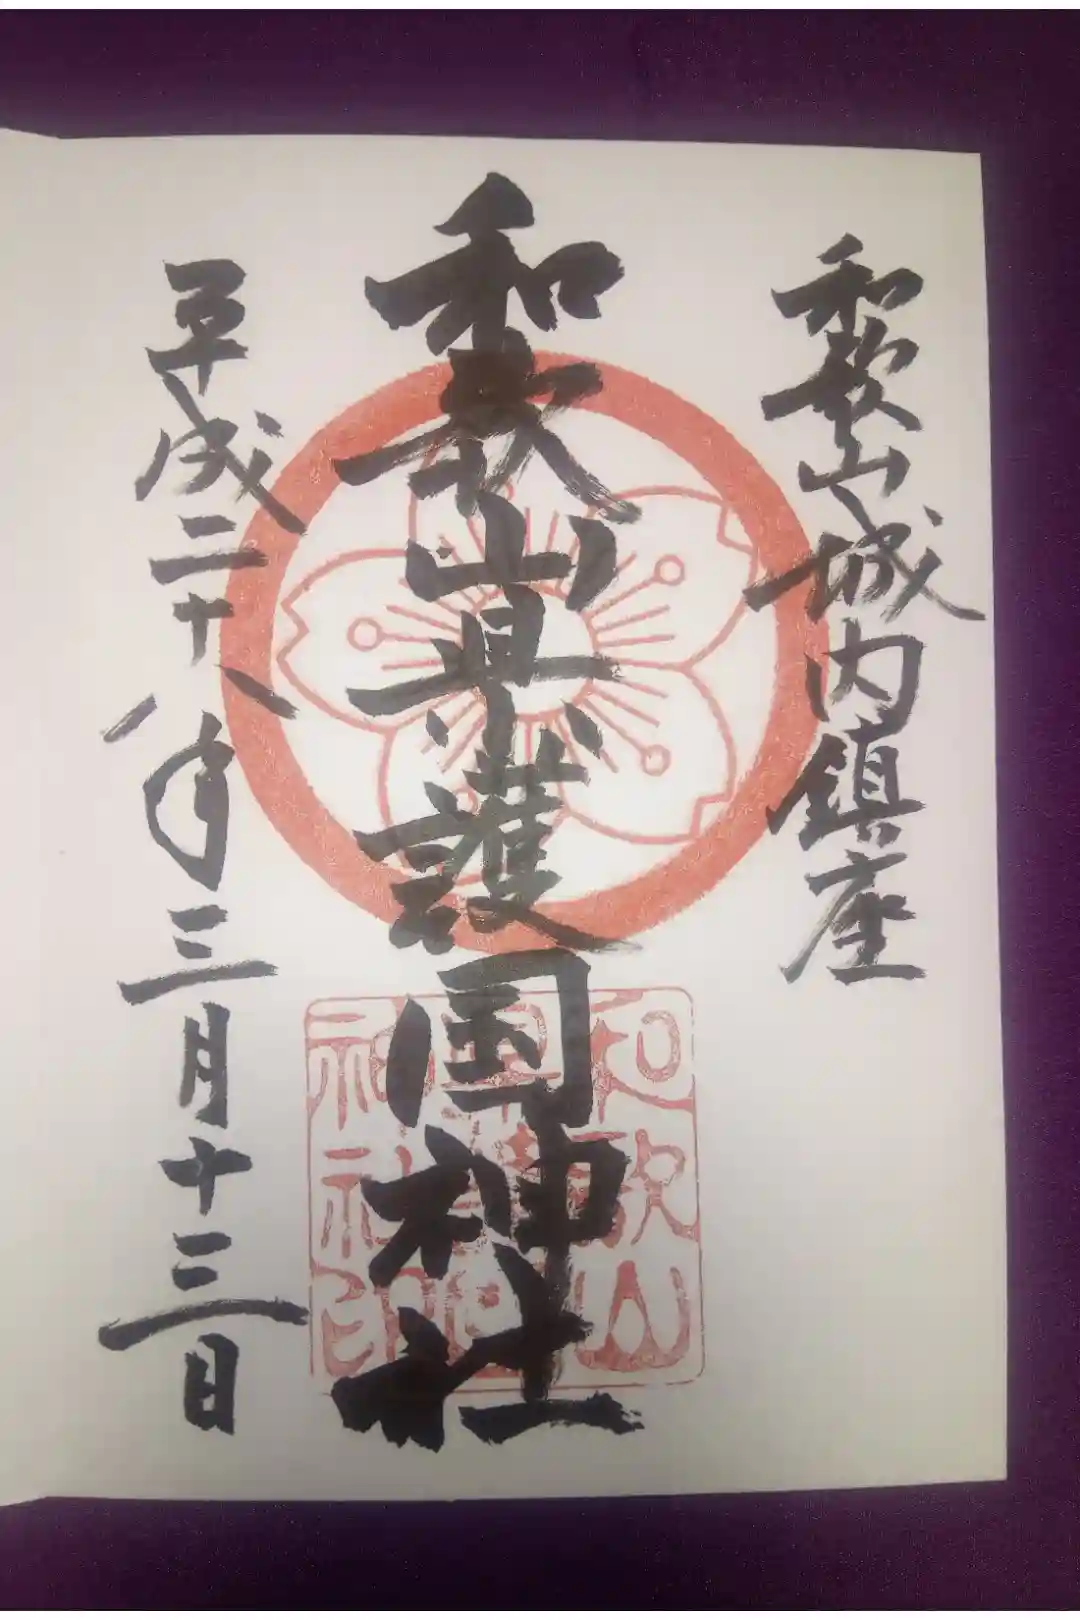 和歌山城内鎮座
和歌山県護国神社
平成二十八年三月十三日
和歌山
県護国
神社印